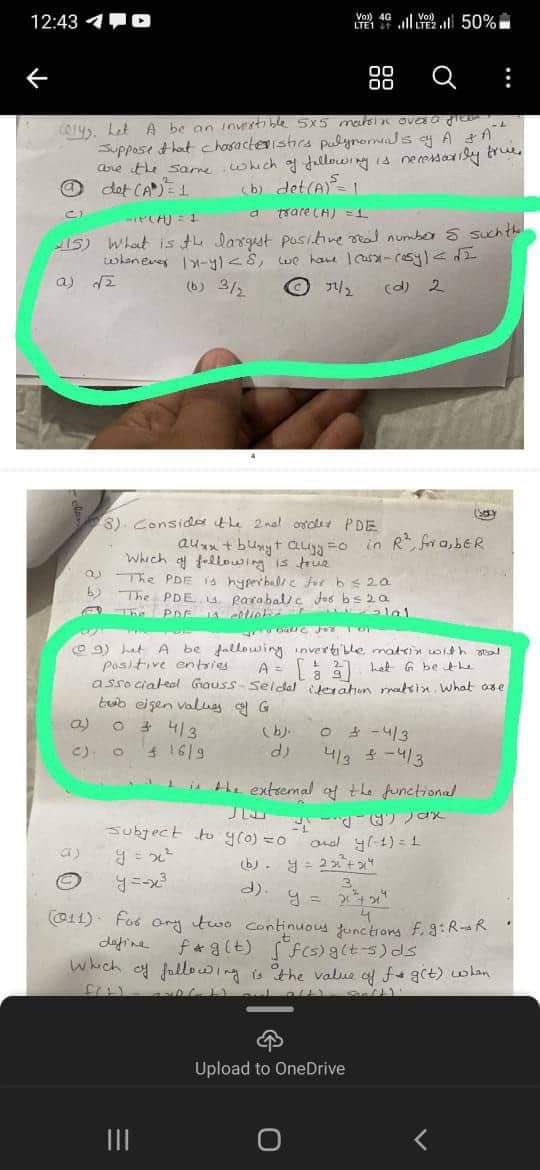 12:43
Vo) 4G Vo)
LTE1 LTE2 50%
Q14). Let A be an invertible 5x5 matrix over a
Suppose that characteristics polynomials of A & A⁻¹
are the same. which of following is necessarily true
(a) det(A)²=1 (b) det(A)⁵=1
c) d trace(A) =1
15) What is the largest positive real number δ such th
whenever |x-y|<δ, we have |cosx-cosy|<√2
a) √2 (b) 3/2 (c) π/2 (d) 2
4
8). Consider the 2nd order PDE
auxx + buxy + auyy =0 in R², for a,b∈R
Which of following is true
a) The PDE is hyperbolic for b≤2a
b) The PDE is parabolic for b≤2a
The PDE is
Q9) Let A be following invertible matrix with real
positive entries A = [1 2 8 9]. Let G be the
associated Gauss-Seidel iteration matrix. What are
two eigen values of G
a) 0 & 4/3 (b). 0 & -4/3
c). 0 & 16/9 d) 4/3 & -4/3
is the extremal of the functional
subject to y(0)=0 and y(-1)=1
a) y=x² (b). y = 2x²+x⁴
3
(c) y=-x³ d). y = x²+x⁴
4
(Q11). For any two continuous functions f,g:R→R
define f*g(t) ∫₀ᵗf(s)g(t-s)ds
which of following is the value of f*g(t) when
Upload to OneDrive